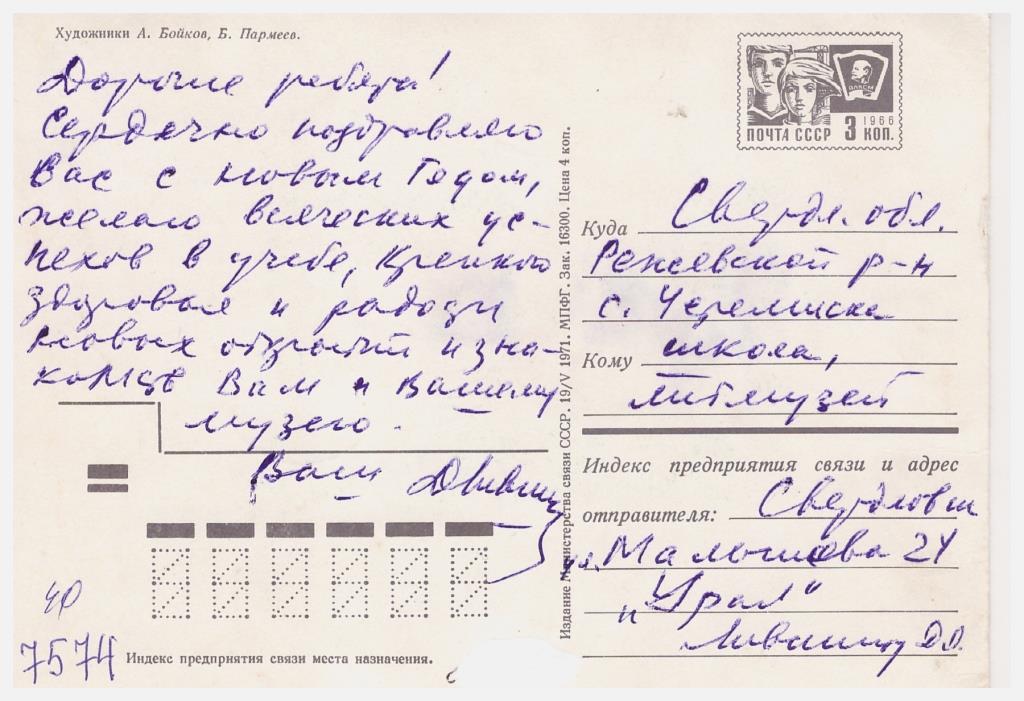 Художники А. Бойков, Б. Пармеев.
Дорогие ребята!
Сердечно поздравляю
Вас с новым Годом,
желаю всяческих ус-
пехов в учебе, крепкого
здоровья и радости
новых открытий и зна-
комств Вам и Вашему
музею.
Ваш Д Лившиц
ВЛКСМ
ПОЧТА СССР 3 КОП. 1966
Издание Министерства связи СССР. 19/V 1971. МПФГ. Зак. 16300. Цена 4 коп.
Куда Свердл. обл.
Режевской р-н
с. Черемисска
Кому школа,
литмузей
Индекс предприятия связи и адрес
отправителя: Свердловск
ул. Малышева 24
"Урал"
Лившиц Д.
7574
Индекс предприятия связи места назначения.